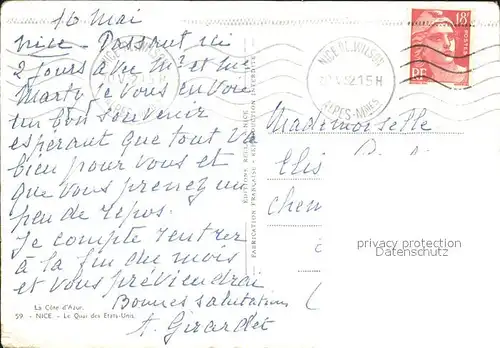 16 Mai
Nice - Passant ici
2 jours avec Mr et Me
Marty je vous envoie
un bon souvenir
espérant que tout va
bien pour vous et
que vous prenez un
peu de repos.
Je compte rentrer
à la fin du mois
et vous préviendrai
Bonnes salutations
A. Girardet
La Côte d'Azur.
59 - NICE - Le Quai des Etats-Unis.
FABRICATION FRANÇAISE - REPRODUCTION INTERDITE
18F
POSTES
RF
15H
ALPES-MMES
NICE
15H
ALPES-MMES
Mademoiselle
Elis
chem
privacy protection
Datenschutz